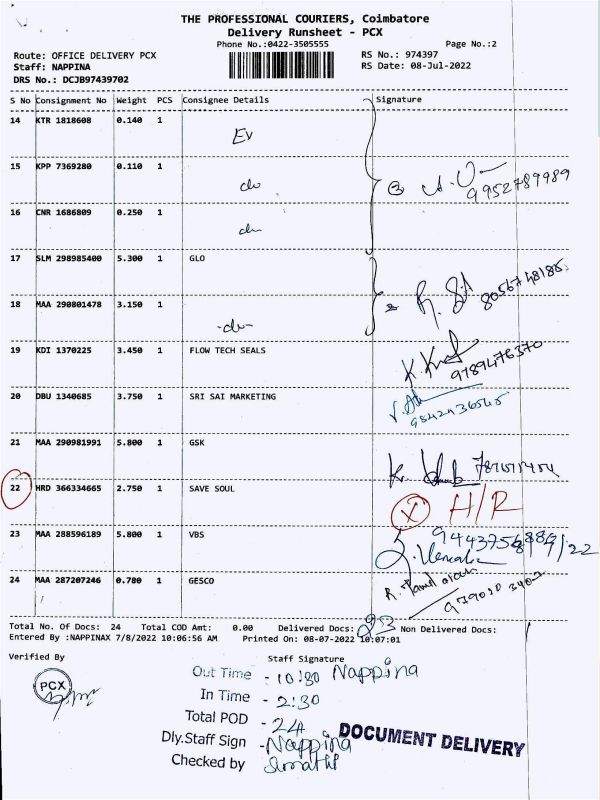 THE PROFESSIONAL COURIERS, Coimbatore
Delivery Runsheet - PCX
Phone No.:0422-3505555 Page No.:2
Route: OFFICE DELIVERY PCX RS No.: 974397
Staff: NAPPINA RS Date: 08-Jul-2022
DRS No.: DCJB97439702
S No Consignment No Weight PCS Consignee Details Signature
14 KTR 1818608 0.140 1
15 KPP 7369280 0.110 1 do
9952789989
16 CNR 1686809 0.250 1 do
17 SLM 298985400 5.300 1 GLO
8056748185
18 MAA 290801478 3.150 1 -do-
19 KDI 1370225 3.450 1 FLOW TECH SEALS
9789476370
20 DBU 1340685 3.750 1 SRI SAI MARKETING
21 MAA 290981991 5.800 1 GSK
22 HRD 366334665 2.750 1 SAVE SOUL X H/R
23 MAA 288596189 5.800 1 VBS
24 MAA 287207246 0.780 1 GESCO
Total No. Of Docs: 24 Total COD Amt: 0.00 Delivered Docs: 23 Non Delivered Docs: 1
Entered By :NAPPINAX 7/8/2022 10:06:56 AM Printed On: 08-07-2022 10:07:01
Verified By Staff Signature
PCX
Out Time - 10:80 Nappina
In Time - 2:30
Total POD - 24
Dly.Staff Sign - Nappina
DOCUMENT DELIVERY
Checked by